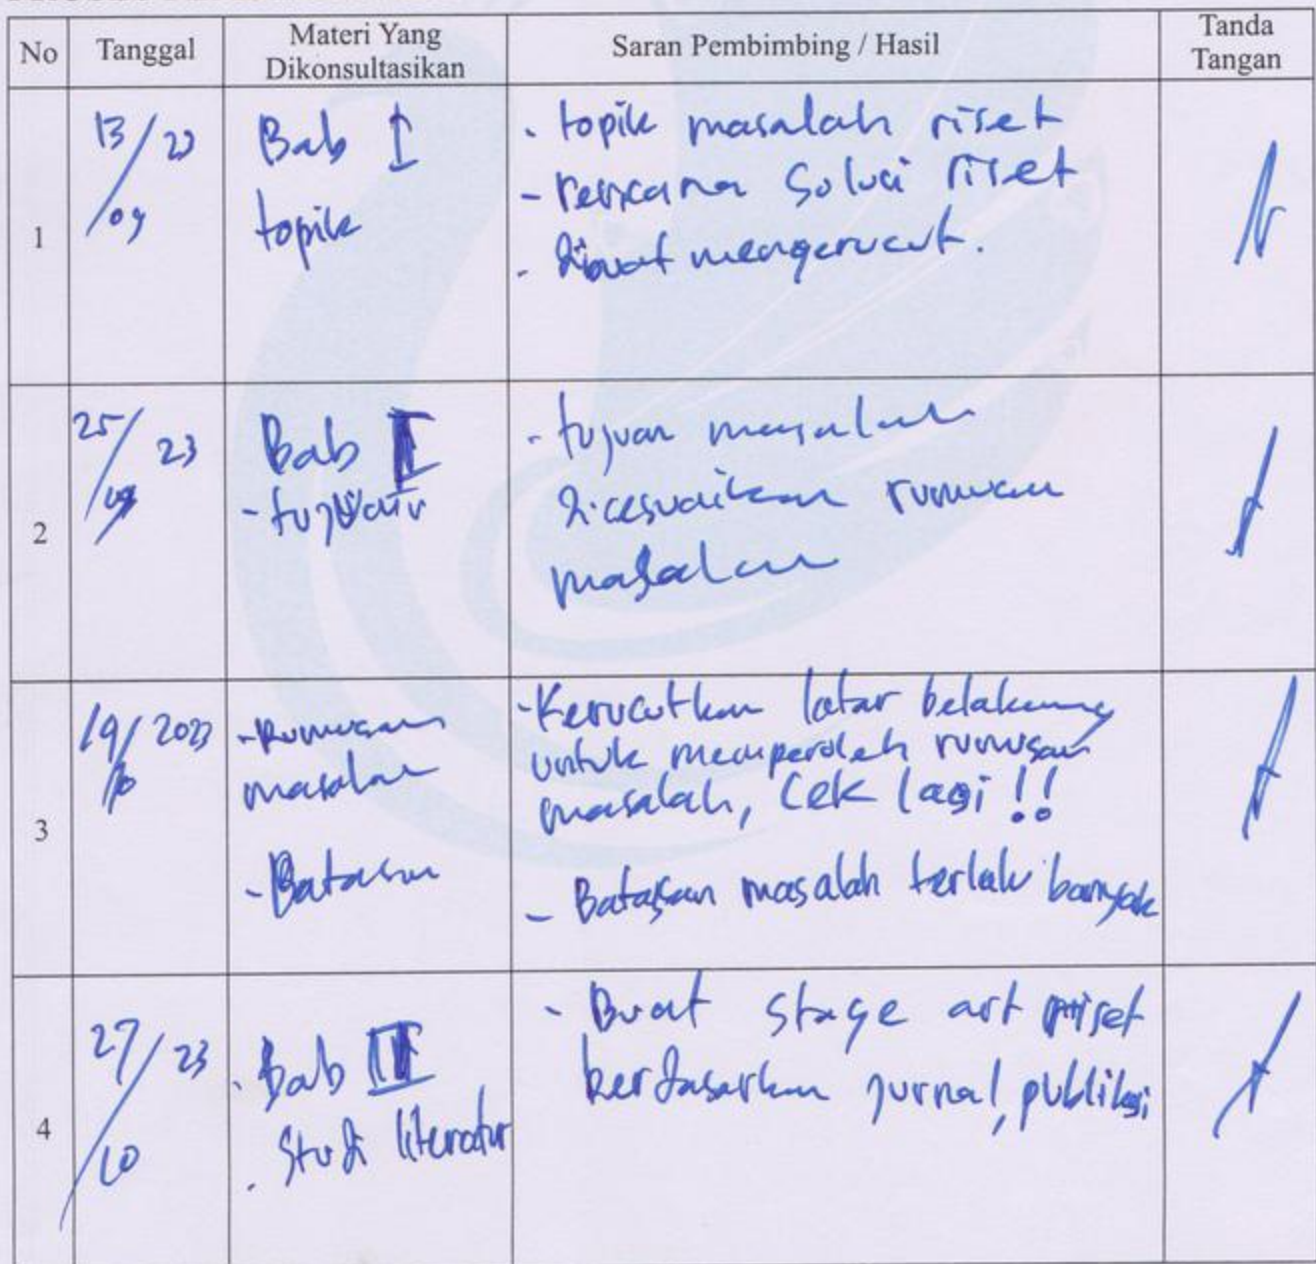 No
Tanggal
Materi Yang
Dikonsultasikan
Saran Pembimbing / Hasil
Tanda
Tangan
1
13/09 23
Bab I
topik
- topik masalah riset
- rencana Solusi riset
- dibuat mengerucut.
2
25/09 23
Bab I
- tujuan
- tujuan masalah
disesuaikan rumusan
masalah
3
19/10 2023
- Rumusan
masalah
- Batasan
- Kerucutkan latar belakang
untuk memperoleh rumusan
masalah, Cek lagi !!
- Batasan masalah terlalu banyak
4
27/10 23
. Bab II
. Studi literatur
- Buat stage art riset
berdasarkan jurnal, publikasi